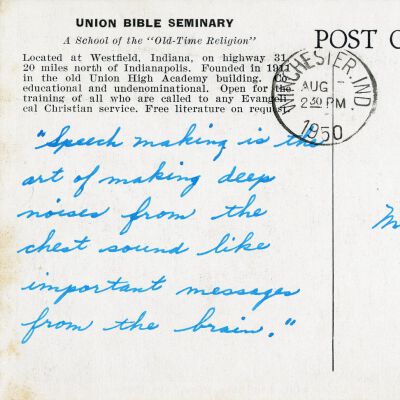 UNION BIBLE SEMINARY
A School of the "Old-Time Religion"
POST
Located at Westfield, Indiana, on highway 31,
20 miles north of Indianapolis. Founded in 1911
in the old Union High Academy building. Co-
educational and undenominational. Open for the
training of all who are called to any Evangeli-
cal Christian service. Free literature on request.
WINCHESTER, IND
AUG
2 30 PM
1950
"Speech making is the
art of making deep
noises from the
chest sound like
important messages
from the brain."